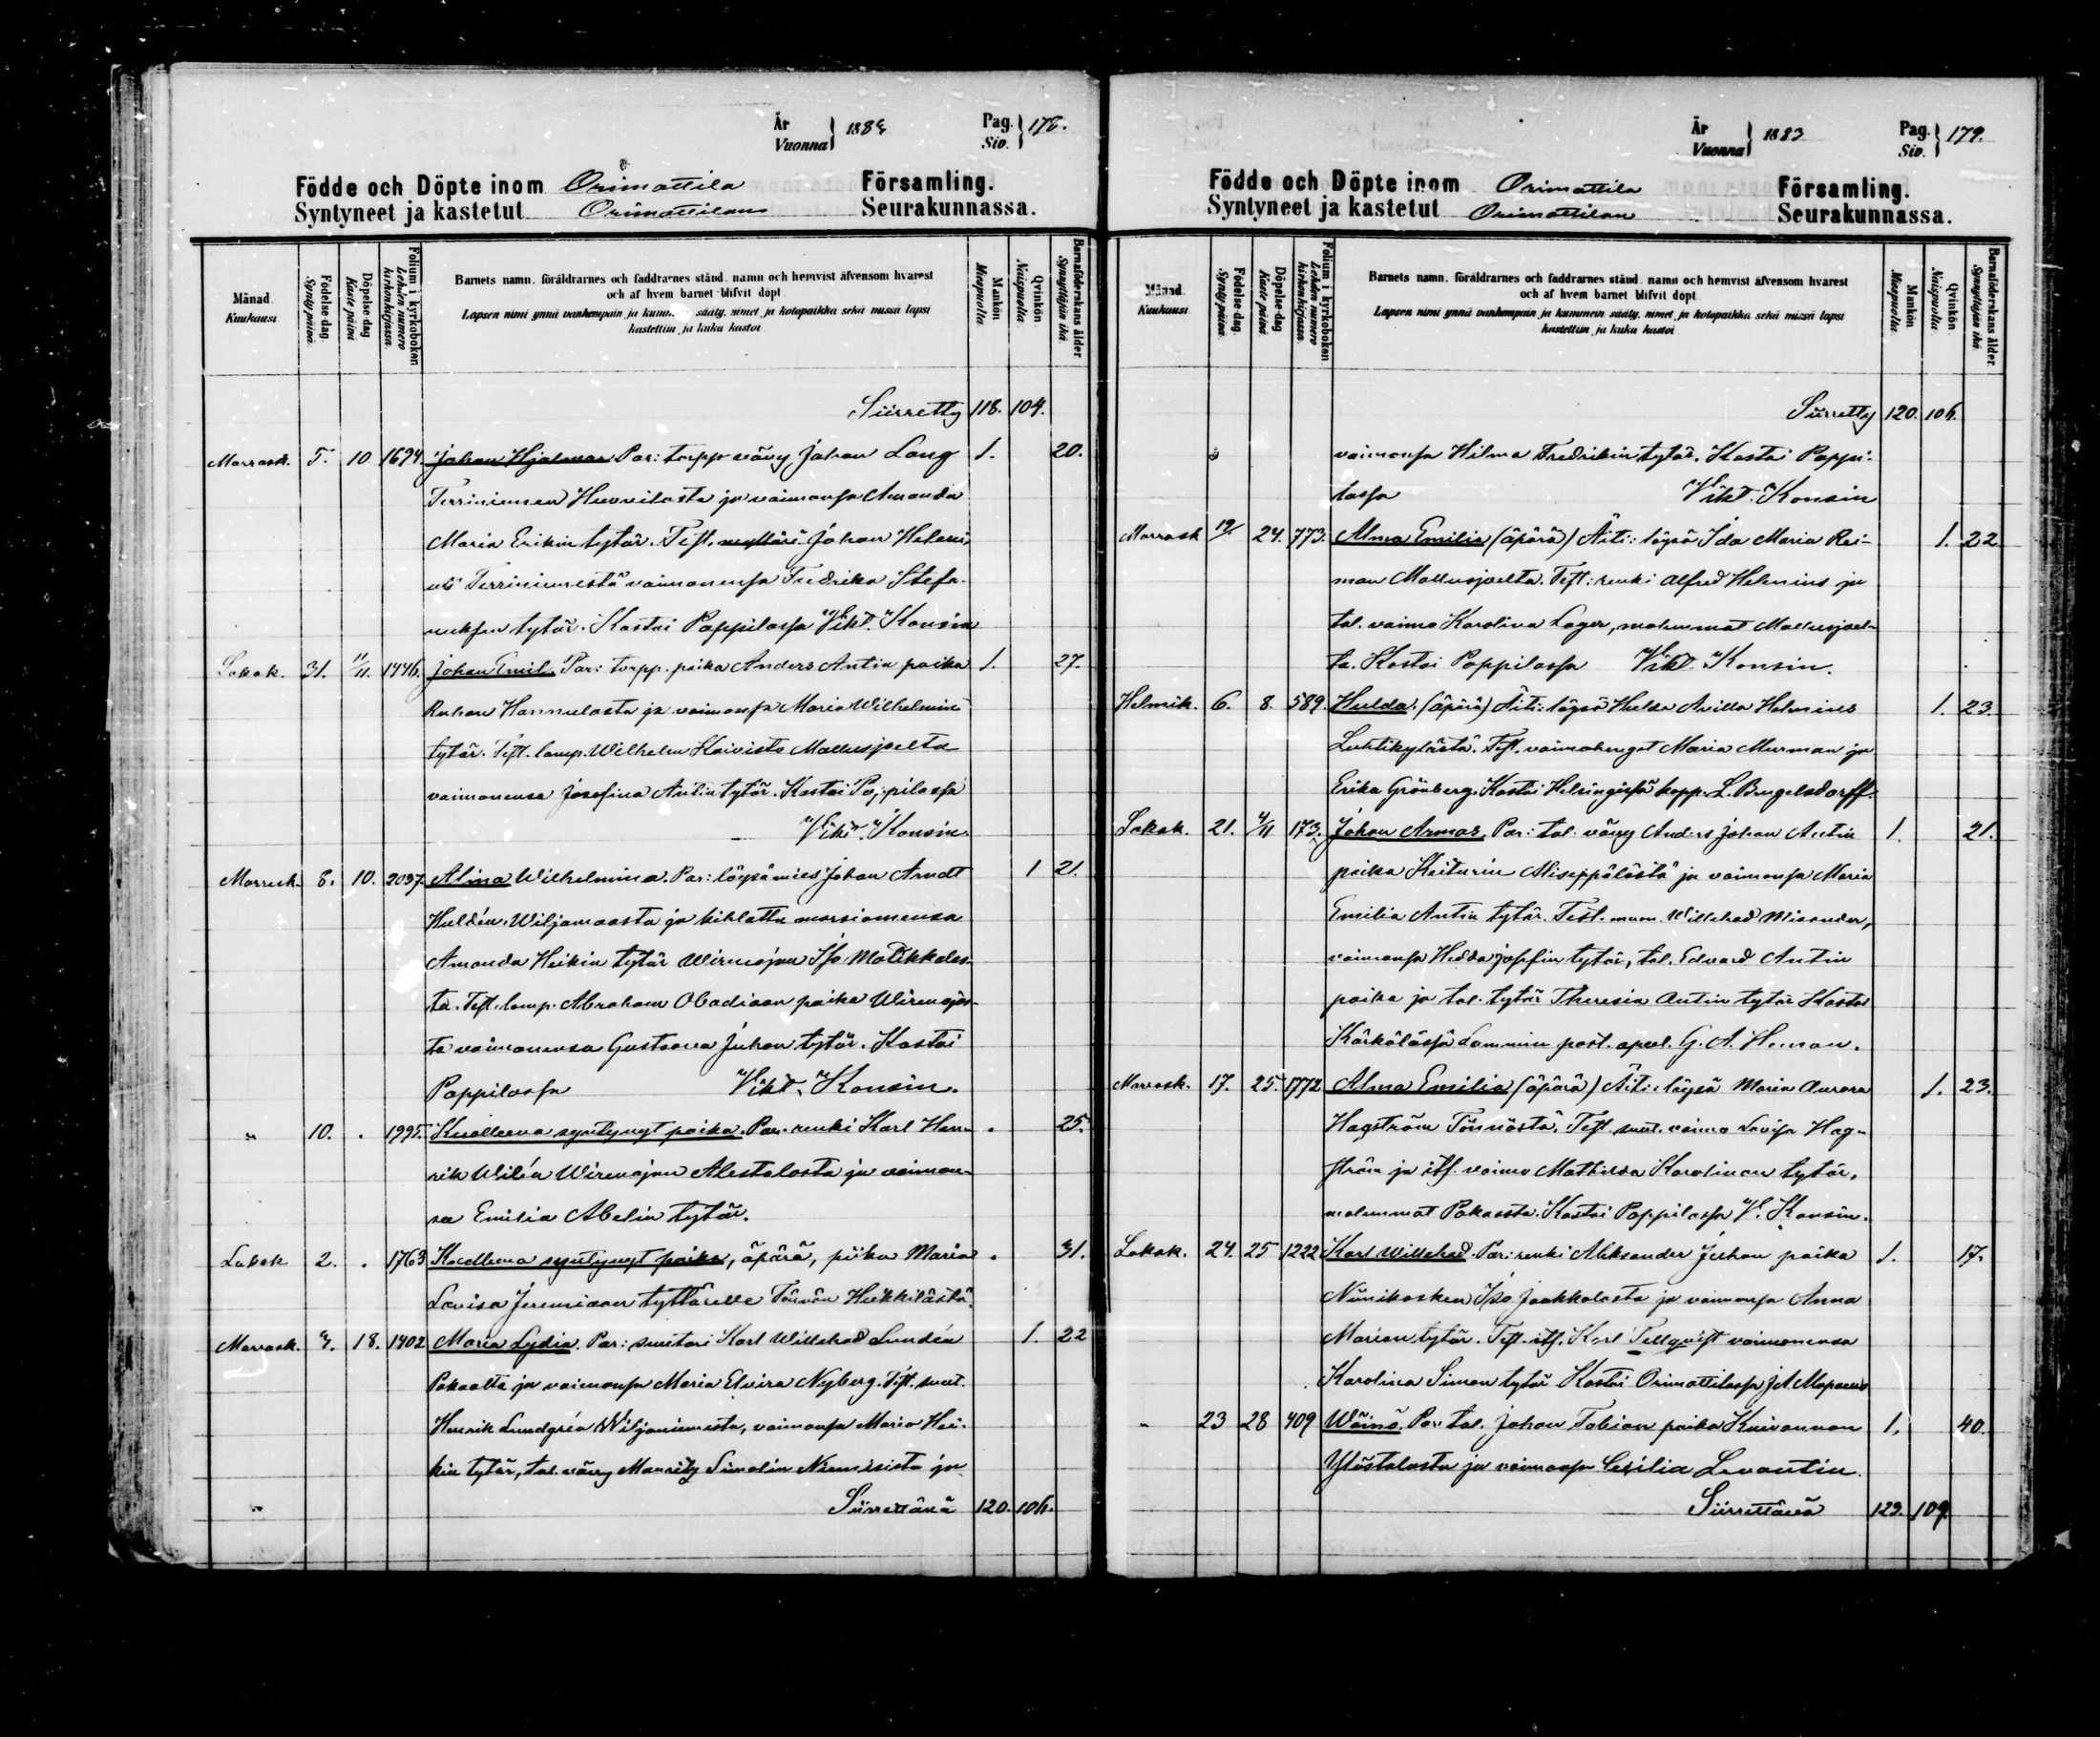 År
Vuonna } 1883
Pag.
Siv. } 178.
Födde och Döpte inom Orimattila Församling.
Syntyneet ja kastetut Orimattilan Seurakunnassa.
Månad.
Kuukausi.
Födelse dag.
Synty päivä.
Döpelse dag
Kaste päivä
Folium i kyrkoboken
Lehden numero
kirkonkirjassa.
Barnets namn, föräldrarnes och faddrarnes stånd, namn och hemvist äfvensom hvarest
och af hvem barnet blifvit döpt
Lapsen nimi ynnä vanhempain ja kumm sääty, nimet ja kotopaikka sekä missä lapsi
kastettiin ja kuka kastoi
Mankön
Miespuolia
Qvinkön
Naispuolia
Barnaföderskans ålder.
Synnyttäjän ikä.
Siirretty 118. 104.
Marrask. 5. 10 1694. Johan Hjalmar Par: torpp vävy Johan Lang 1. 20.
Terriniemen Huvilasta ja vaimonsa Amanda
Maria Erikin tytär. Test. Johan Heleni
us Terriniemestä vaimonensa Fredrika Stefa-
nuksen tytär. Kastoi Pappilassa Vikt. Konsin
Lokak. 31. 11/11. 1446. Johan Emil. Par: torpp. poika Anders Antin poika 1. 27.
Ruhan Hannulasta ja vaimonsa Maria Wilhelmin
tytär. Test. lamp. Wilhelm Koivisto Mallusjoelta
vaimonensa Josefina Antin tytär. Kastoi Pappilassa
Vikt. Konsin.
Marrask. 8. 10. 2037. Alina Wilhelmina. Par: löysä mies Johan Arndt 1 21.
Huldén. Wiljamaasta ja kihlattu morsiamensa
Amanda Heikin tytär Wirenojan Iso Matikkalas-
ta. Test. lamp. Abraham Obadiaan poika Wirenojas-
ta vaimonensa Gustaava Juhon tytär. Kastoi
Pappilassa Vikt. Konsin.
" 10. . 1995. Kuolleena syntynyt poika. Par. renki Karl Hen- . 25.
rik Wilén Wirenojan Alestalosta ja vaimon-
sa Emilia Abelin tytär.
Lokak 2. . 1763 Kuolleena syntynyt poika, äpärä, piika Maria . 31.
Lovisa Jeremiaan tyttärelle Tönnön Heikkilästä.
Marrask. 18. 1402 Maria Lydia. Par: suutari Karl Willehad Lundén 1. 22
Pakaalta ja vaimonsa Maria Elvira Nyberg. Test. mut.
Henrik Lundgrén Wiljaniemestä, vaimonsa Maria Hei-
kin tytär, tal. vävy Mauritz Simolin Niemisistä ja
" Siirrettävä 120. 106.
År
Vuonna } 1883
Pag.
Siv. } 179.
Födde och Döpte inom Orimattila Församling.
Syntyneet ja kastetut Orimattilan Seurakunnassa.
Månad.
Kuukausi
Födelse dag.
Synty päivä.
Döpelse dag
Kaste päivä
Folium i kyrkoboken
Lehden numero
kirkonkirjassa.
Barnets namn, föräldrarnes och faddrarnes stånd, namn och hemvist äfvensom hvarest
och af hvem barnet blifvit döpt
Lapsen nimi ynnä vanhempain ja kummein sääty, nimet ja kotopaikka sekä missä lapsi
kastettiin ja kuka kastoi
Mankön
Miespuolia
Qvinkön
Naispuolia
Barnaföderskans ålder.
Synnyttäjän ikä.
Siirretty 120. 106.
vaimonsa Hilma Fredrikin tytär. Kastoi Pappi-
lassa Vikt. Konsin
Marrask 19/ 24. 773. Alma Emilia (äpärä) Äiti: löysä Ida Maria Rei- 1. 22
man Mallusjoelta. Test: renki Alfred Helenius ja
tal. vaimo Karolina Lager, molemmat Mallusjoel-
ta. Kastoi Pappilassa Vikt. Konsin.
Helmik. 6. 8. 589. Hulda. (äpärä) Äiti: löysä Hulda Helenius 1. 23.
Luhtikylästä. Test. vaimohenget Maria Murman ja
Erika Grönberg. Kastoi Helsingissä kapp. L. Bengelsdorff.
Lokak. 21. 4/11 173. Johan Armas. Par: tal. vävy Anders Johan Antin 1. 21.
poika Keiturin Aliseppälästä ja vaimonsa Maria
Emilia Antin tytär. Test. mam. Willehad Misander,
vaimonsa Hedda Josefin tytär, tal. Edvard Antin
poika ja tal. tytär Theresia Antin tytär Kastoi
Kärkölässä Lammin past. apul. G. A. Heman.
Marrask. 17. 25. 1772 Alma Emilia (äpärä) Äiti: löysä Maria Aurora 1. 23.
Hagström Tönnöstä. Test. mut. vaimo Lovisa Hag-
ström ja its. vaimo Mathilda Karolinan tytär,
molemmat Pakaasta. Kastoi Pappilassa V. Konsin.
Lokak. 24. 25 1222 Karl Willehad. Par: renki Aleksander Juhon poika 1. 17.
Niinikosken Iso Jaakkolasta ja vaimonsa Anna
Marian tytär. Test. its. Karl Tellqvist vaimonensa
Karolina Simon tytär Kastoi Orimattilassa
" 23 28 409 Wäinö. Par: tal. Johan Tobian poika Kuivannon 1. 40.
Ylöstalosta ja vaimonsa Cesilia Levantin.
Siirrettävä 123. 109.